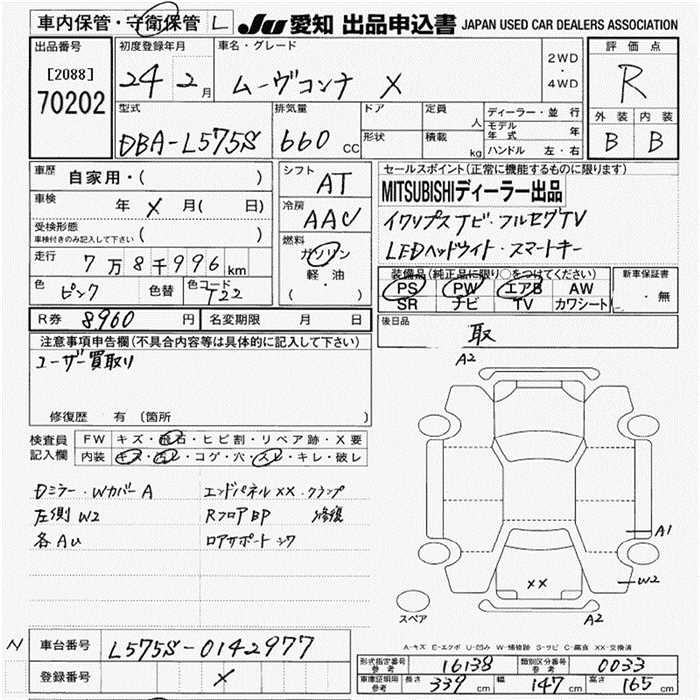 車内保管・守衛保管 L Ju 愛知 出品申込書 JAPAN USED CAR DEALERS ASSOCIATION
出品番号 初度登録年月 車名・グレード 評価点
[2088] 24 2月 ムーヴコンテ X 2WD・4WD R
70202
型式 排気量 ドア 定員 人 ディーラー・並行 外装 内装
DBA-L575S 660 cc 形状 積載 kg モデル年式 年 B B
ハンドル 左・右
車歴 自家用・( ) シフト AT セールスポイント(正常に機能するものに限ります)
MITSUBISHIディーラー出品
車検 年 X 月( 日) 冷房 AAC
受検形態 ( )
車検付きのみ記入して下さい
イクリプスナビ・フルセグTV
走行 7万8千996km 燃料 ガソリン
軽・油
( )
LEDヘッドライト・スマートキー
色 ピンク 色替 色コード T22
装備品(純正品に限り○をつけてください) 新車保証書
PS PW エアB AW ・無
SR ナビ TV カワシート
R券 8960円 名変期限 月 日 後日品 取
注意事項申告欄(不具合内容等は具体的に記入して下さい)
ユーザー買取り
修復歴 有 (箇所 )
A2
検査員 FW キズ・飛石・ヒビ割・リペア跡・X要
記入欄 内装 キズ・汚レ・コゲ・穴・スレ・キレ・破レ
Dミラー・WカバーA エンドパネルXX・クランプ
左側W2 RフロアBP 修復
各AU ロアサポートシワ
A1
XX W2
スペア A2
A-キズ E-エクボ U-凹み W-補修跡 S-サビ C-腐食 XX-交換済
N 車台番号 L575S-0142977
登録番号 X
形式指定番号 参考 16138 類別区分番号 参考 0033
車庫証明用 参考 長さ 339cm 幅 147cm 高さ 165cm